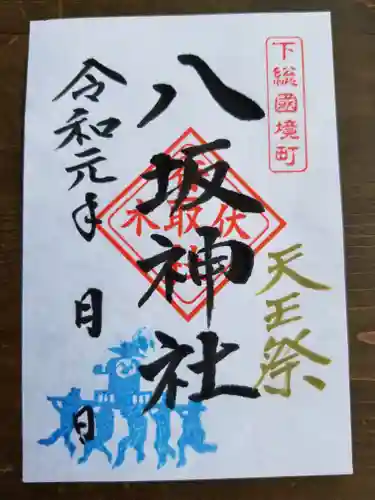 下総國境町
天王祭
八坂神社
令和元年 月 日